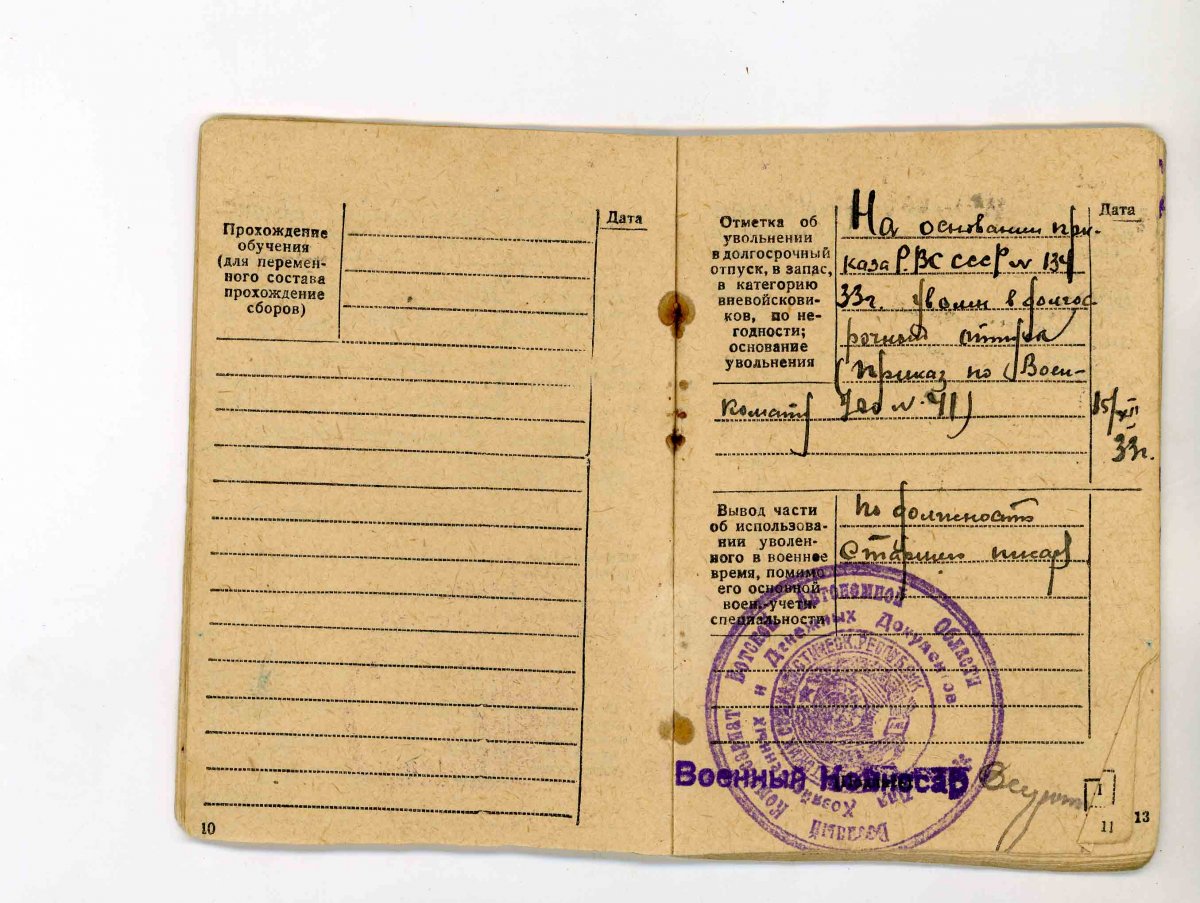 Прохождение
обучения
(для перемен-
ного состава
прохождение
сборов)
Дата
10
Отметка об
увольнении
в долгосрочный
отпуск, в запас,
в категорию
вневойскови-
ков, по не-
годности;
основание
увольнения
Дата
На основании при-
каза Р.ВС СССР № 134
33г. уволен в долгос-
рочный отпуск
(Приказ по Воен-
комату № 41)
15/XII
33г.
Вывод части
об использова-
нии уволен-
ного в военное
время, помимо
его основной
воен.-учетн.
специальности
По должность
Старшего писаря
Военный Комиссариат Вотской Автономной Области
Для Хозяйственных и Денежных Документов
Военный Комиссар
I
11
13